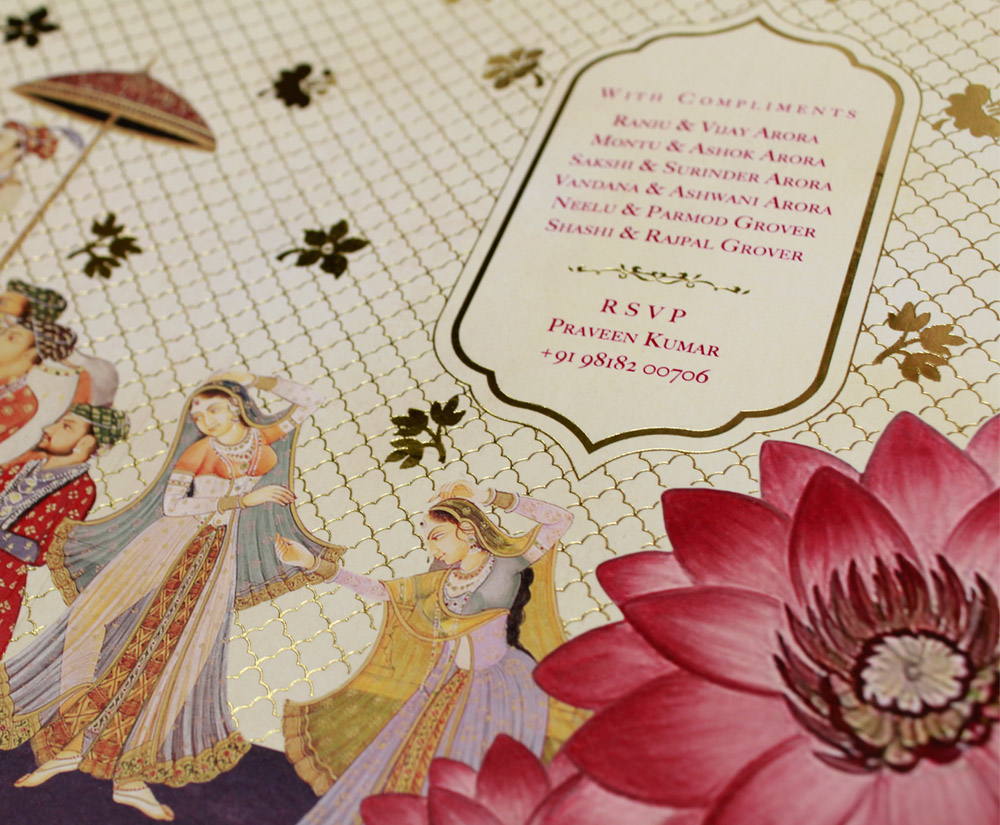 WITH COMPLIMENTS
RANJU & VIJAY ARORA
MONTU & ASHOK ARORA
SAKSHI & SURINDER ARORA
VANDANA & ASHWANI ARORA
NEELU & PARMOD GROVER
SHASHI & RAJPAL GROVER
RSVP
PRAVEEN KUMAR
+91 98182 00706